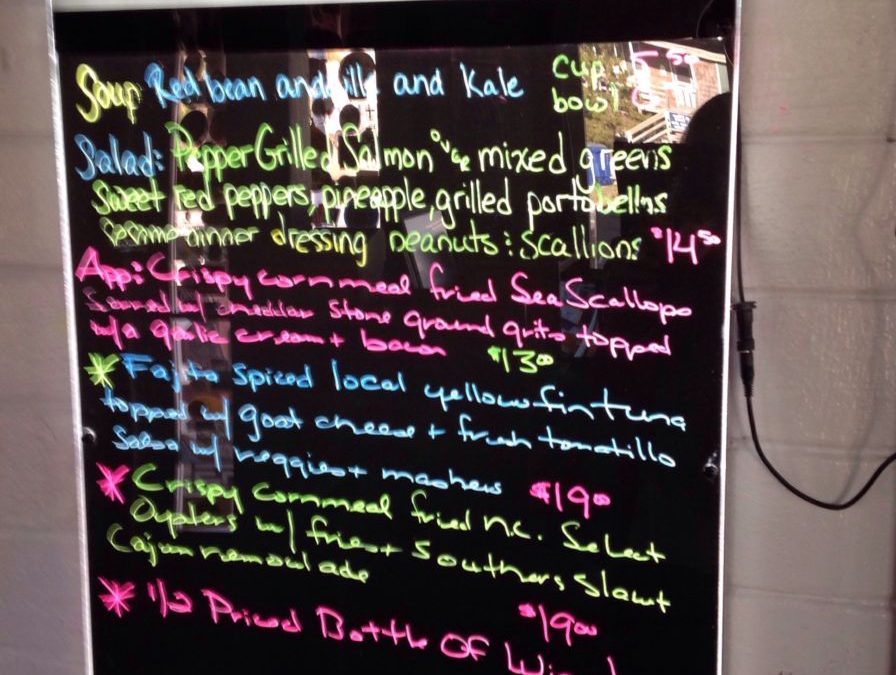 Soup Red bean andouille and Kale cup 5.50
bowl 6
Salad: Pepper Grilled Salmon over mixed greens
sweet red peppers, pineapple, grilled portobellos
Sesame dressing peanuts : scallions $14.50
App: Crispy cornmeal fried Sea Scallops
Served w/ cheddar Stone ground grits topped
w/a garlic cream + bacon $13.00
* Fajita spiced local yellowfin tuna
topped w/ goat cheese + fresh tomatillo
Salsa w/ veggies + mashers $19.00
* Crispy Cornmeal fried n.c. Select
Oysters w/ fries + Southern Slaw +
Cajun remoulade
$19.00
* 1/2 Priced Bottle Of